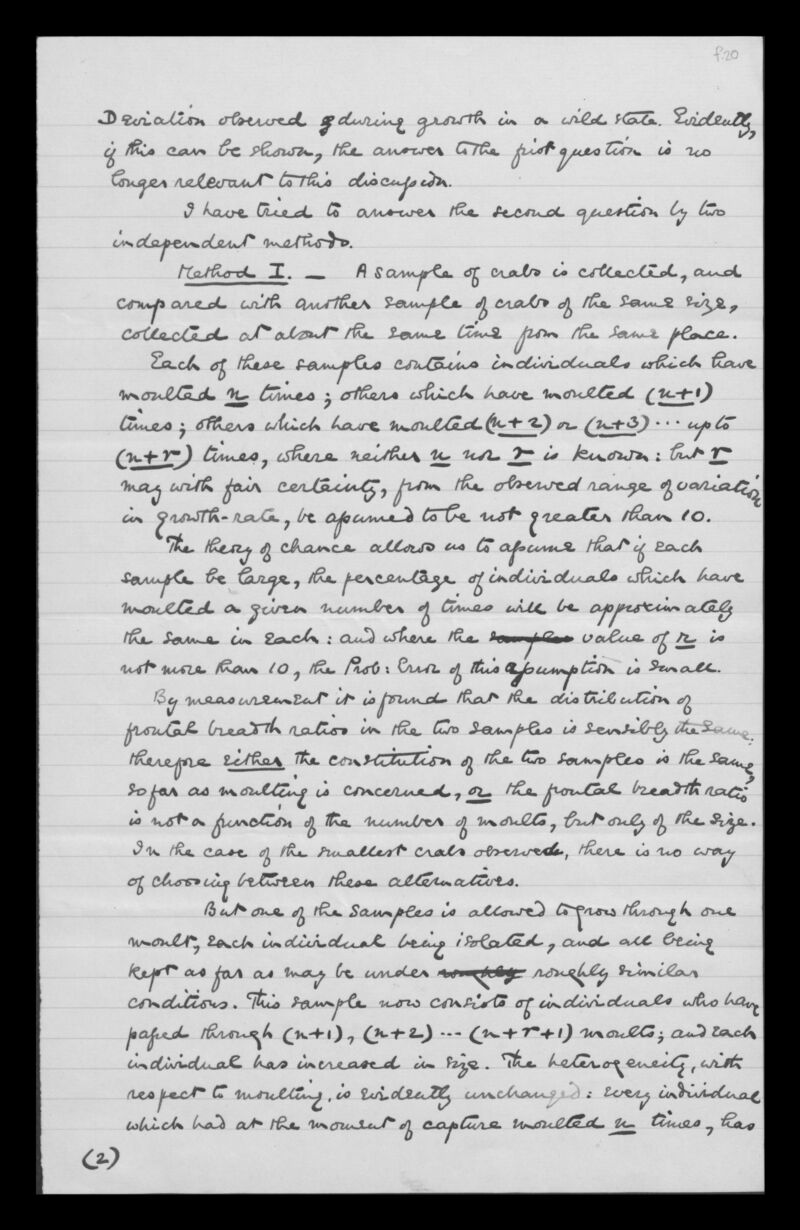 f.20
Deviation observed during growth in a wild state. Evidently,
if this can be shown, the answer to the first question is no
longer relevant to this discussion.
I have tried to answer the second question by two
independent methods.
Method I. — A sample of crabs is collected, and
compared with another sample of crabs of the same size,
collected at about the same time from the same place.
Each of these samples contains individuals which have
moulted n times; others which have moulted (n+1)
times; others which have moulted (n+2) or (n+3) ... up to
(n+r) times, where neither n nor r is known: but r
may with fair certainty, from the observed range of variation
in growth-rate, be assumed to be not greater than 10.
The theory of chance allows us to assume that if each
sample be large, the percentage of individuals which have
moulted a given number of times will be approximately
the same in each: and where the samples value of r is
not more than 10, the Prob: Error of this assumption is small.
By measurement it is found that the distribution of
frontal breadth ratios in the two samples is sensibly the same:
therefore either the constitution of the two samples is the same,
so far as moulting is concerned, or the frontal breadth ratio
is not a function of the number of moults, but only of the size.
In the case of the smallest crabs observed, there is no way
of choosing between these alternatives.
But one of the samples is allowed to grow through one
moult, each individual being isolated, and all being
kept as far as may be under roughly roughly similar
conditions. This sample now consists of individuals who have
passed through (n+1), (n+2) ... (n+r+1) moults; and each
individual has increased in size. The heterogeneity, with
respect to moulting, is evidently unchanged: every individual
which had at the moment of capture moulted n times, has
(2)